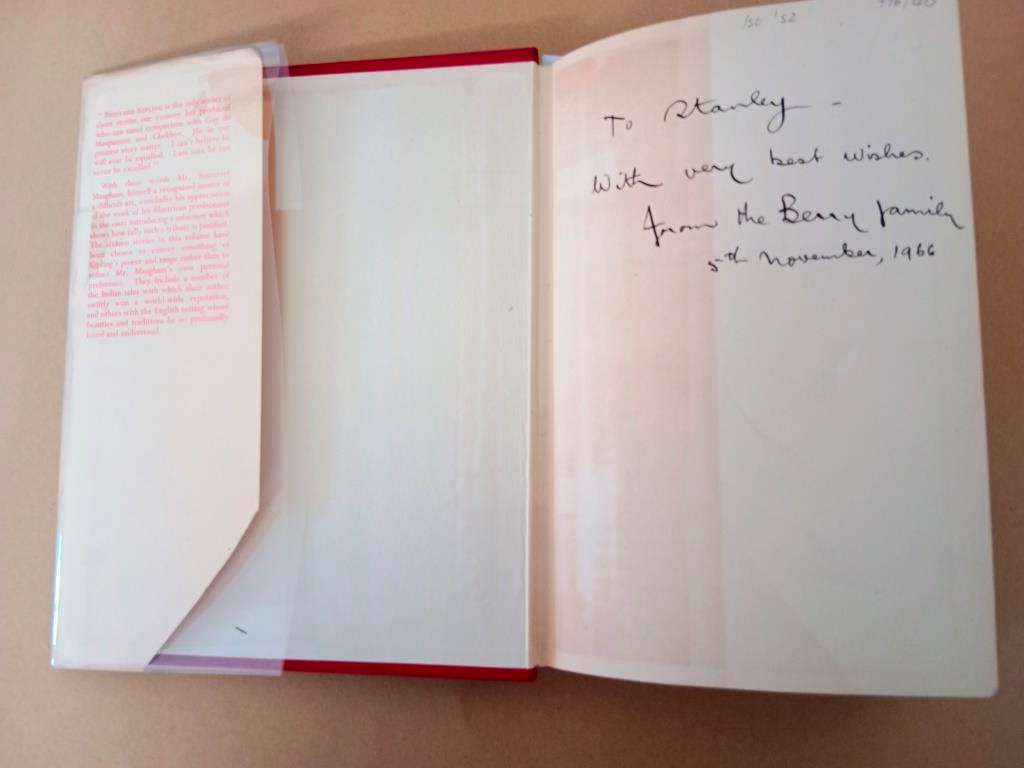 " RUDYARD KIPLING is the only writer of
short stories our country has produced
who can stand comparison with Guy de
Maupassant and Chekhov. He is our
greatest story writer. I can't believe he
will ever be equalled. I am sure he can
never be excelled."
With these words Mr. Somerset
Maugham, himself a recognised master of
a difficult art, concludes his appreciation
of the work of his illustrious predecessor
in the essay introducing a selection which
shows how fully such a tribute is justified.
The sixteen stories in this volume have
been chosen to convey something of
Kipling's power and range rather than to
reflect Mr. Maugham's own personal
preference. They include a number of
the Indian tales with which their author
swiftly won a world-wide reputation,
and others with the English setting whose
beauties and traditions he so profoundly
loved and understood.
To Stanley -
With very best wishes.
from the Berry family
5th November, 1966